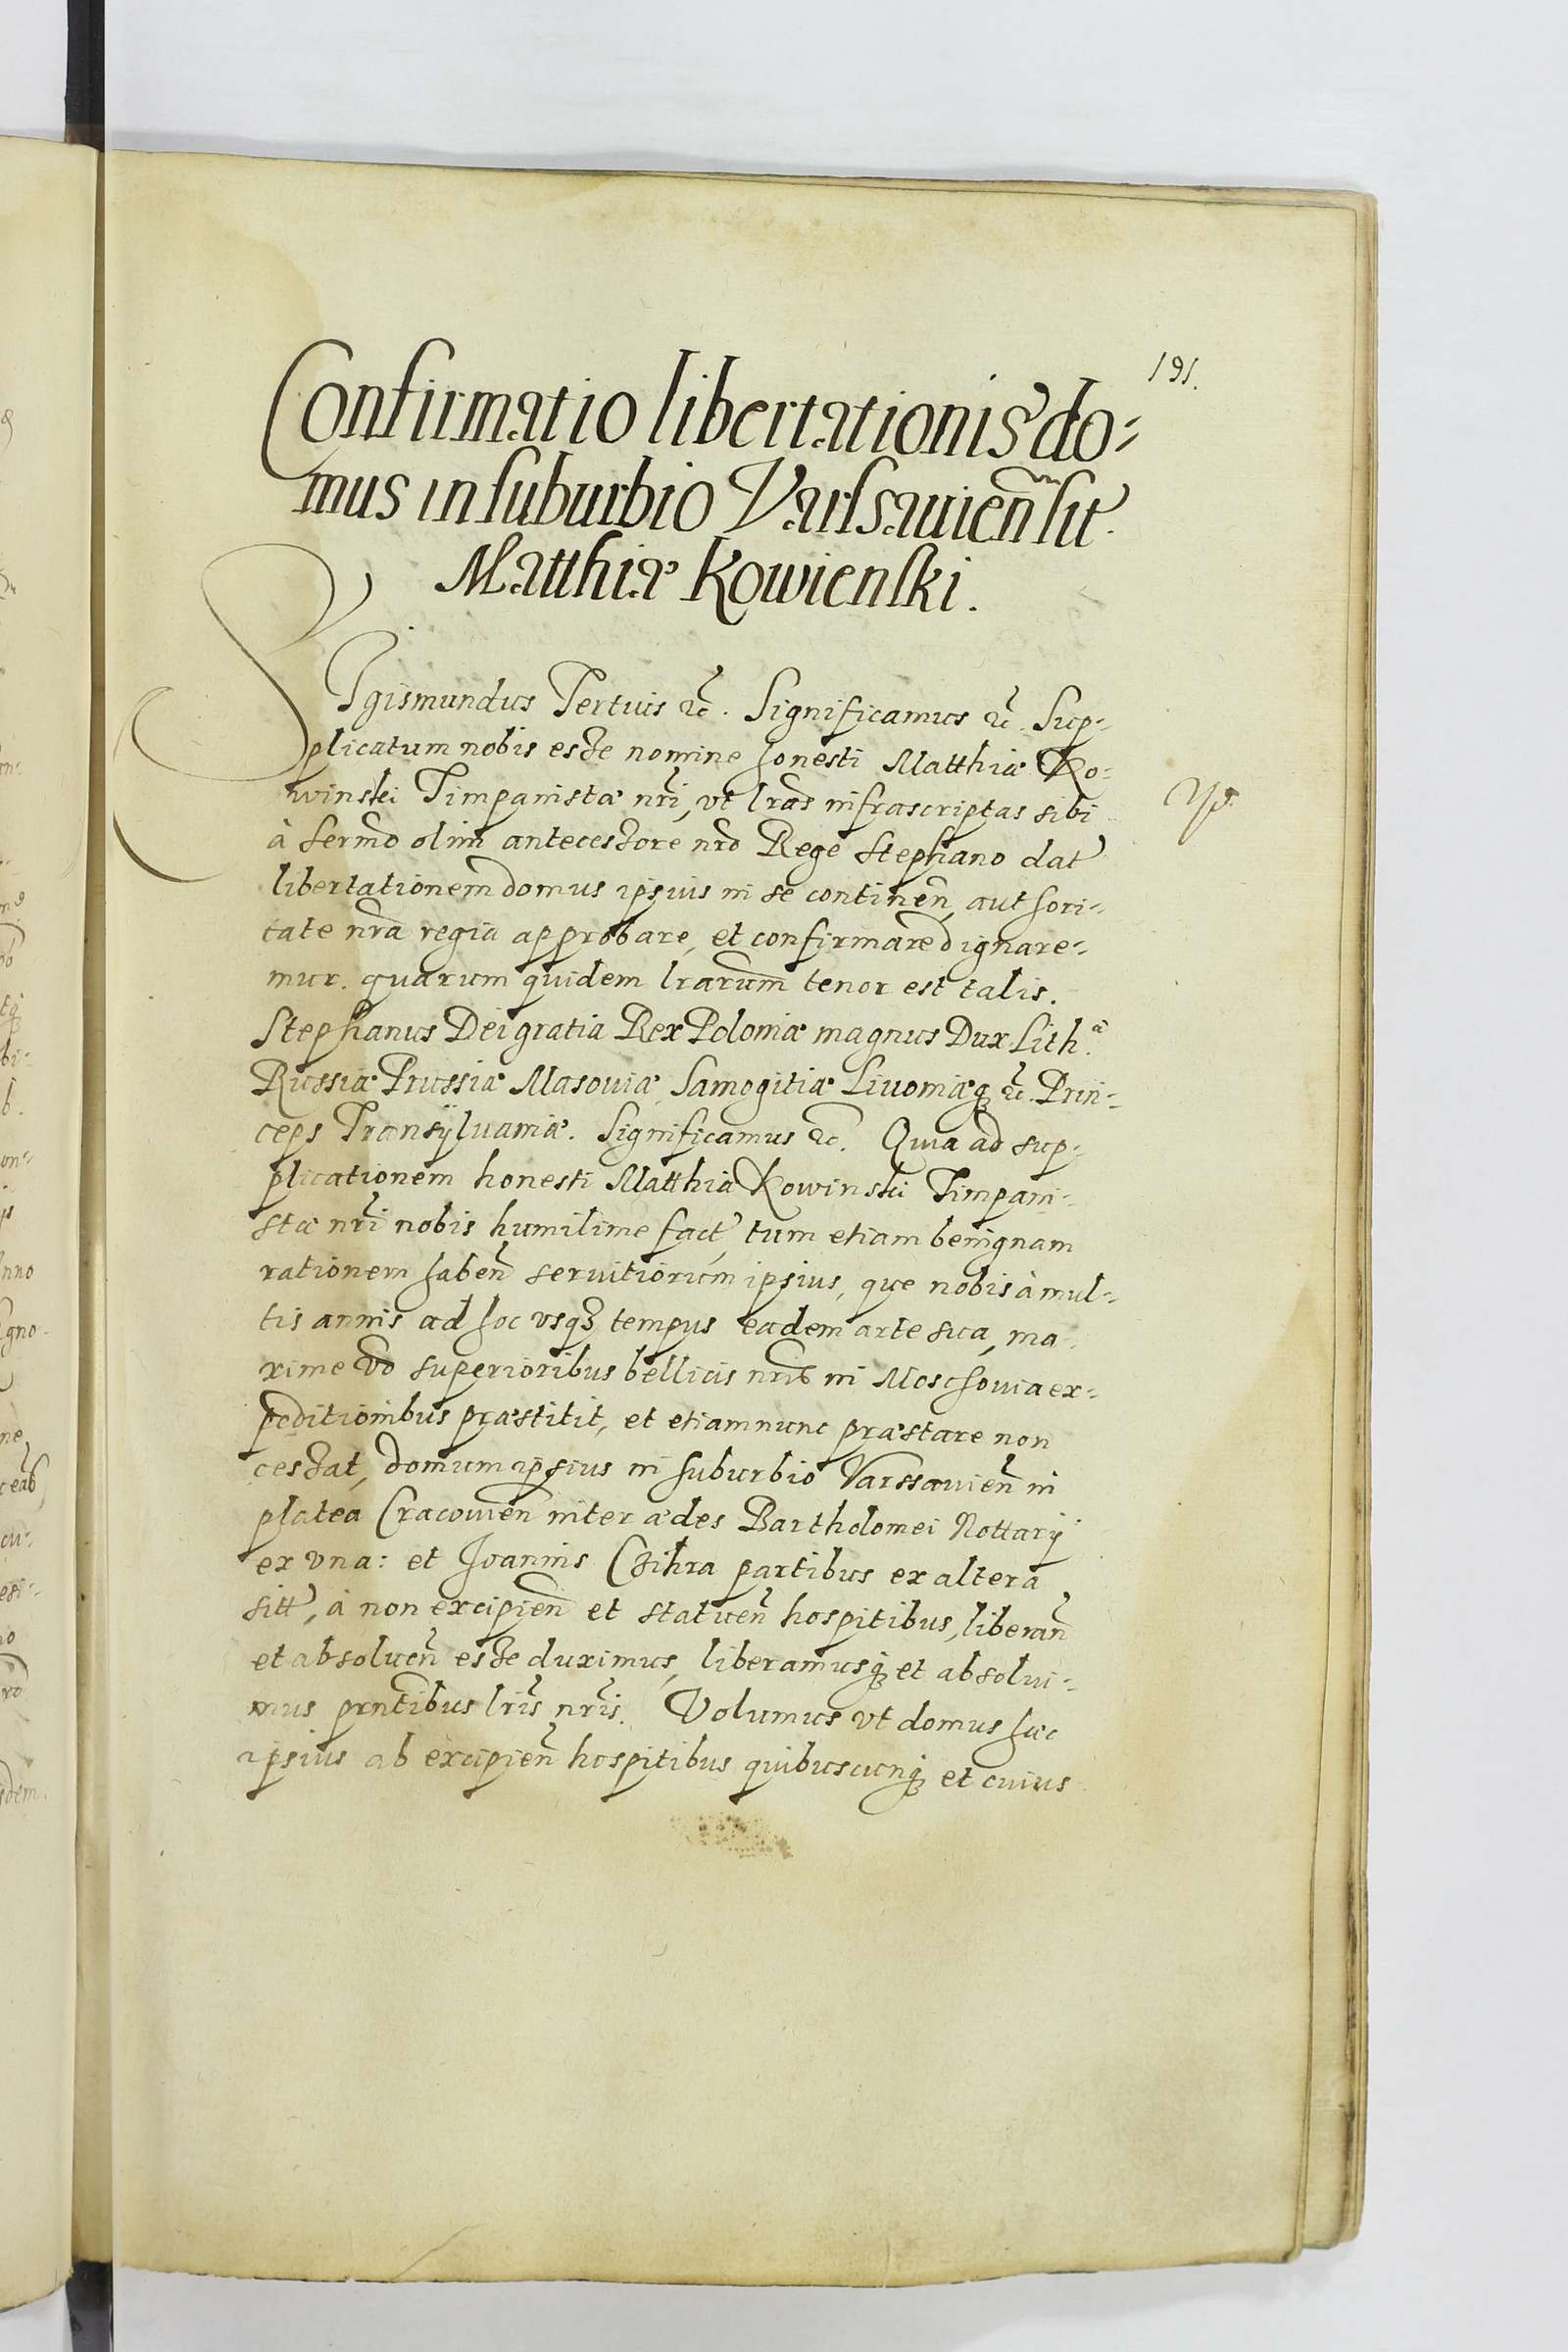 191.
Confirmatio libertationis do-
mus in suburbio Varsauień sit.
Matthiæ Kowienski.
Sigismundus Tertius etc. Significamus etc. Sup-
plicatum nobis esse nomine honesti Matthiæ Ko-
winski Timpanistæ nri, vt lras infrascriptas sibi
à Sermo olim antecessore nro Rege Stephano dat
libertationem domus ipsius in se continen, authori-
tate nra regia approbare, et confirmare dignare-
mur. quarum quidem lrarum tenor est talis.
Stephanus Dei gratia Rex Poloniæ magnus Dux Lith.ᵃ
Russiæ Prussiæ Masouiæ, Samogitiæ Liuoniæq; etc. Prin-
ceps Transÿluaniæ. Significamus etc. Quia ad sup-
plicationem honesti Matthiæ Kowinski Timpani-
stæ nri nobis humilime fact, tum etiam benignam
rationem haben seruitiorum ipsius, que nobis à mul-
tis annis ad hoc vsq; tempus eadem arte sua, ma-
xime vo superioribus bellicis nris in Moschouia ex-
peditionibus præstitit, et etiamnunc præstare non
cessat, domum ipsius in suburbio Varssauien in
platea Cracouien inter ædes Bartholomei Nottarij
ex vna: et Joannis Czihra partibus ex altera
sitt, à non excipien et statuen hospitibus, liberan
et absoluen esse duximus, liberamusq; et absolui-
mus prntibus lris nris. Volumus vt domus hæc
ipsius ab excipien hospitibus quibuscunq; et cuius